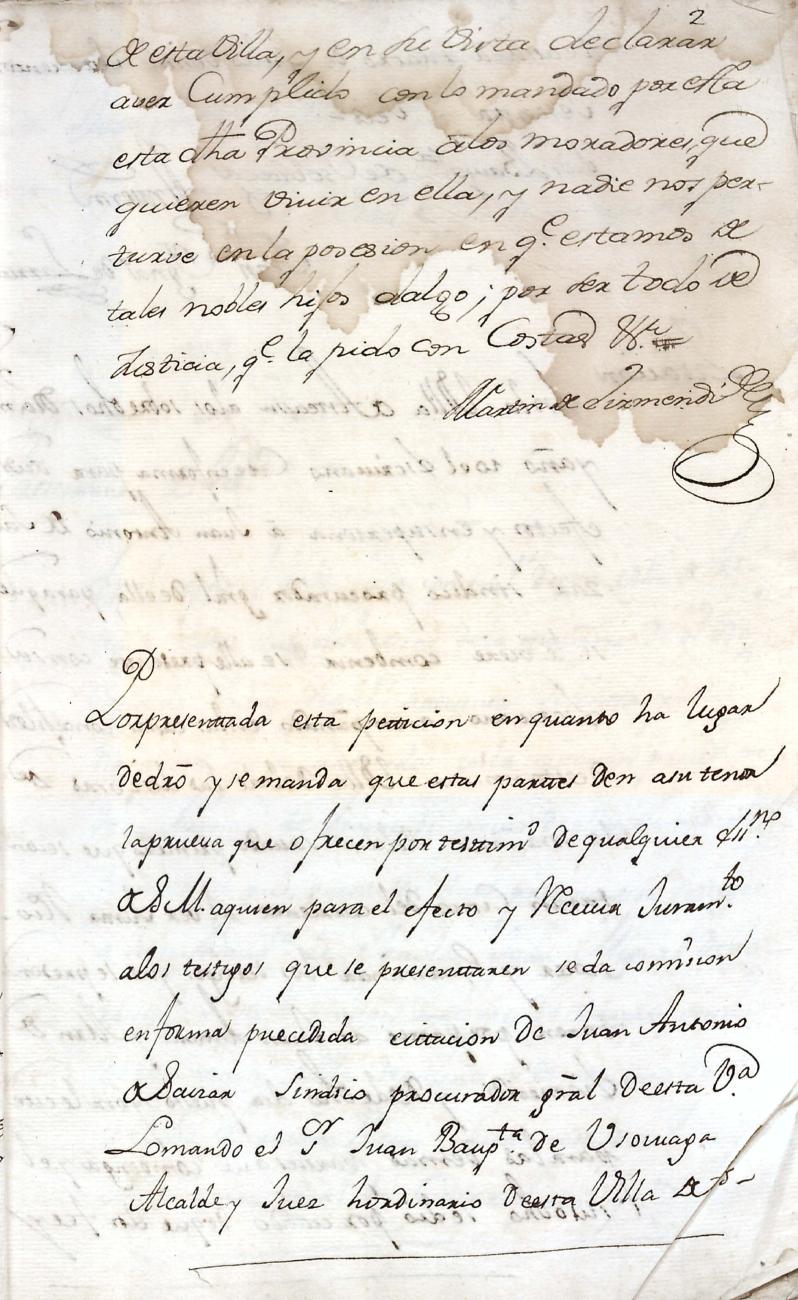 2
de esta Villa, y en su vista declarar
aver Cumplido con lo mandado por esta
esta dha Provincia alos moradores, que
quieren vivir en ella, y nadie nos per-
turve en la posesion en q.e estamos de
tales nobles hijos dalgo; por ser todo de
Justicia, q.e la pido con Costas
Martin de Lizmendi
Por presenttada esta petticion en quanto ha lugar
de dro y se manda que estas parttes den a su tenor
la prueva que ofrecen por testtim.o de qualquier ss.no
de S. M. a quien para el efecto y Recevir Juram.to
a los testigos que se presenttaren se da comision
en forma precedida cittacion de Juan Antonio
de Sindico procurador gral de esta V.a
Lo mando el S.r Juan Baup.ta de Usoviaga
Alcalde y Juez hordinario de esta Villa de